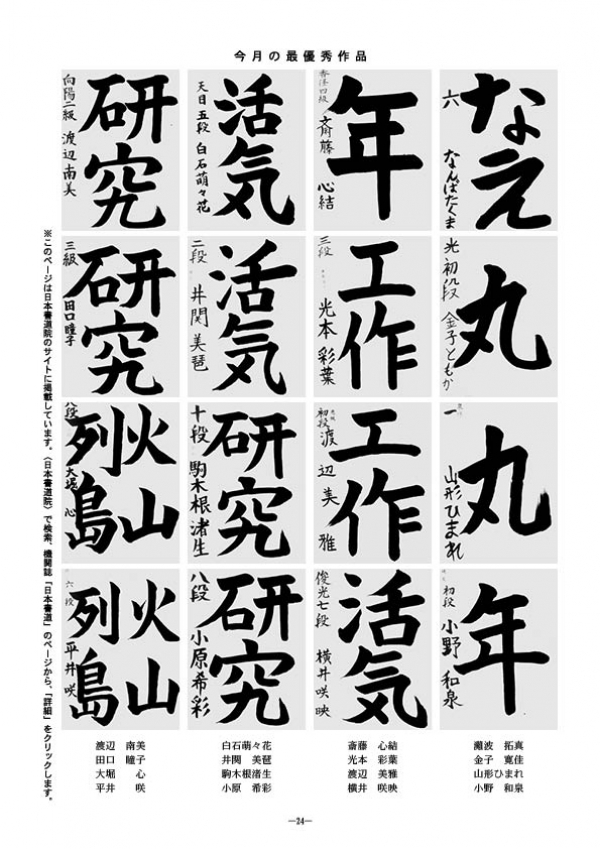 今月の最優秀作品
なえ
六 なんばたくま
丸
光 初段 金子ともか
丸
一 山形ひまれ
年
初段 小野 和泉
年
香洋四級 斎藤 心結
工作
三段 光本 彩葉
工作
初段 渡辺 美雅
活気
俊光七段 横井咲映
活気
天日 五段 白石萌々花
活気
二段 井関美琶
研究
十段 駒木根渚生
研究
八段 小原希彩
研究
向陽二級 渡辺南美
研究
三級 田口瞳子
火山
列島
八段 大堀 心
火山
列島
六段 平井 咲
※このページは日本書道院のサイトに掲載しています。〈日本書道院〉で検索、機関誌「日本書道」のページから、「詳細」をクリックします。
渡辺 南美 白石萌々花 斎藤 心結 灘波 拓真
田口 瞳子 井関 美琶 光本 彩葉 金子 寛佳
大堀 心 駒木根渚生 渡辺 美雅 山形ひまれ
平井 咲 小原 希彩 横井 咲映 小野 和泉
―24―